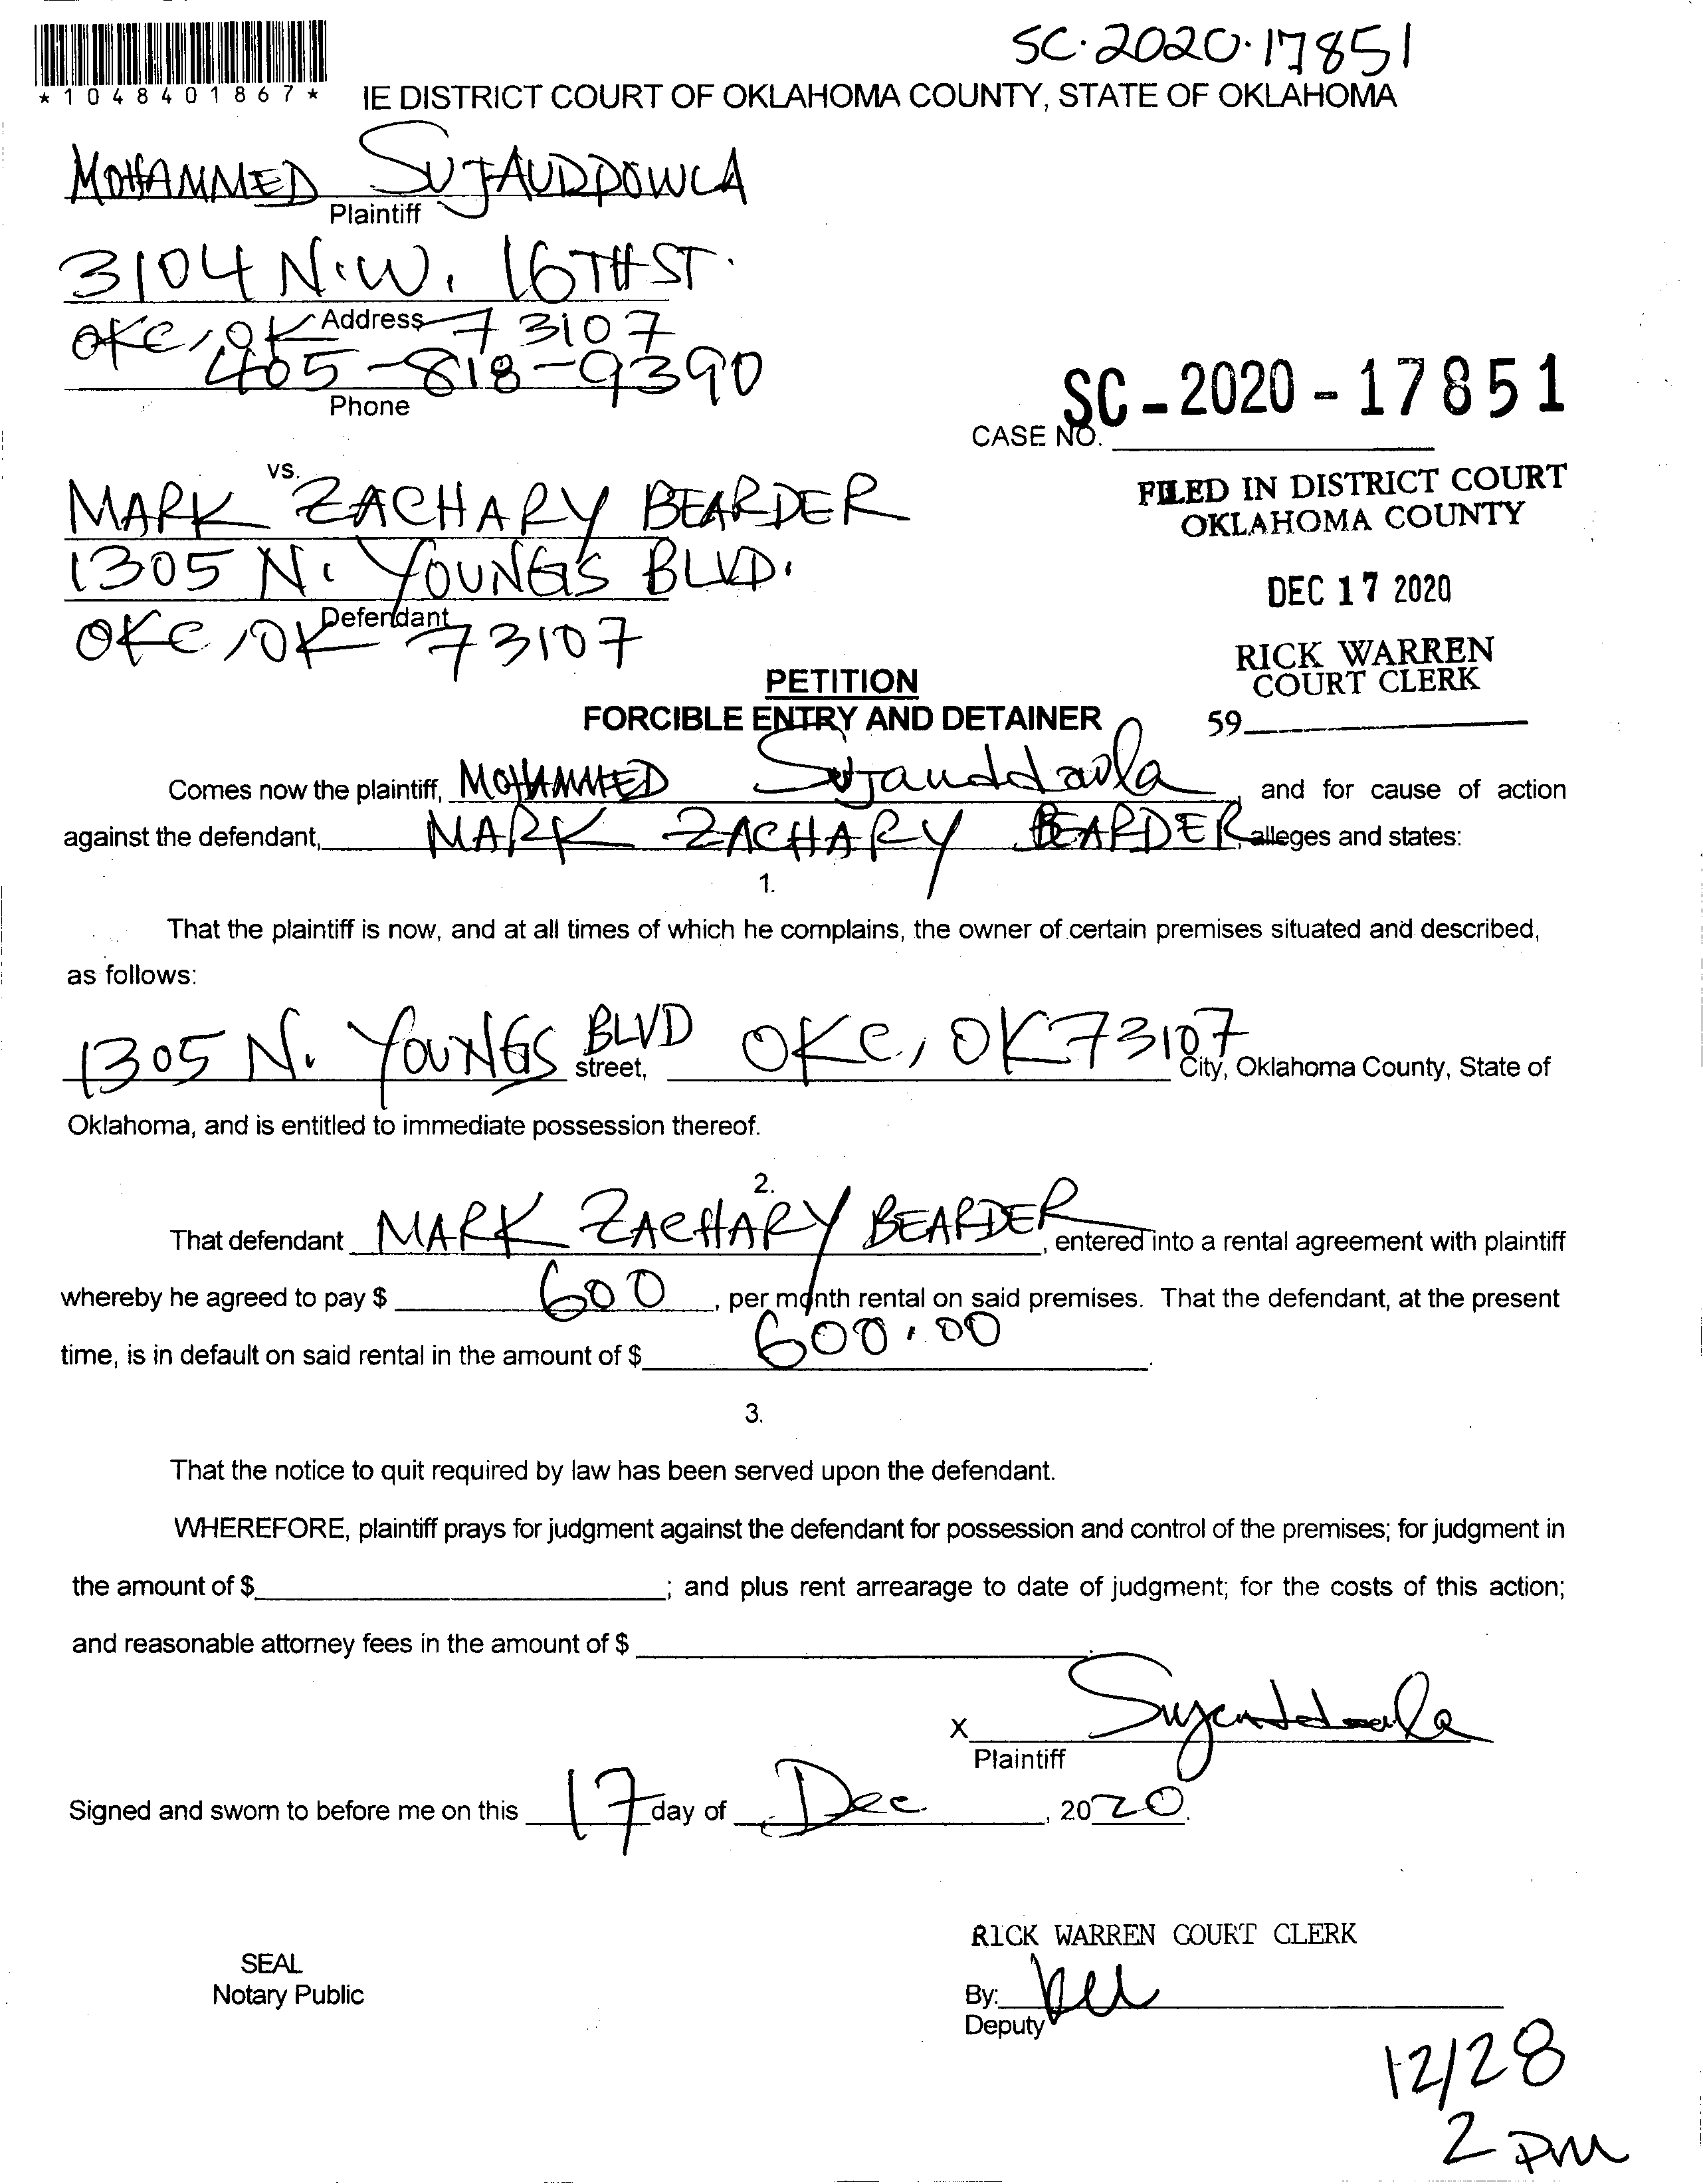 SC·2020·17851
*1048401867*
IE DISTRICT COURT OF OKLAHOMA COUNTY, STATE OF OKLAHOMA
MOHAMMED SUJAUDDOWLA
Plaintiff
3104 N.W. 16TH ST.
Address
OKC, OK 73107
405-818-9390
Phone
SC-2020-17851
CASE NO.
vs.
MARK ZACHARY BEARDER
1305 N. YOUNGS BLVD.
Defendant
OKC, OK 73107
FILED IN DISTRICT COURT
OKLAHOMA COUNTY
DEC 17 2020
RICK WARREN
COURT CLERK
59
PETITION
FORCIBLE ENTRY AND DETAINER
Comes now the plaintiff, MOHAMMED Sujauddowla, and for cause of action
against the defendant, MARK ZACHARY BEARDER, alleges and states:
1.
That the plaintiff is now, and at all times of which he complains, the owner of certain premises situated and described,
as follows:
1305 N. YOUNGS BLVD street, OKC, OK 73107 City, Oklahoma County, State of
Oklahoma, and is entitled to immediate possession thereof.
2.
That defendant MARK ZACHARY BEARDER, entered into a rental agreement with plaintiff
whereby he agreed to pay $ 600, per month rental on said premises. That the defendant, at the present
time, is in default on said rental in the amount of $ 600.00.
3.
That the notice to quit required by law has been served upon the defendant.
WHEREFORE, plaintiff prays for judgment against the defendant for possession and control of the premises; for judgment in
the amount of $ ; and plus rent arrearage to date of judgment; for the costs of this action;
and reasonable attorney fees in the amount of $
X Sujauddowla
Plaintiff
Signed and sworn to before me on this 17 day of Dec, 2020.
RICK WARREN COURT CLERK
SEAL
Notary Public
By:
Deputy
12/28
2 PM